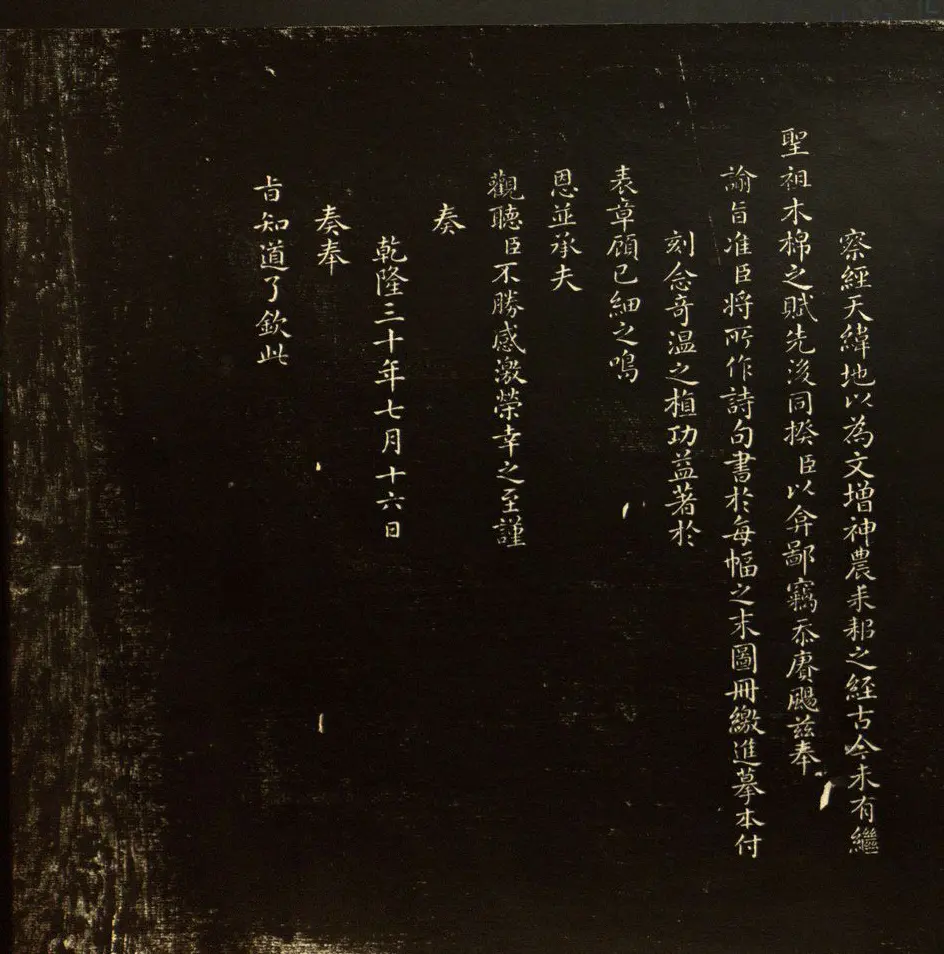 察經天緯地以為文增神農耒耜之經古今未有繼
聖祖木棉之賦先後同揆臣以弇鄙竊忝賡颺兹奉
諭旨准臣將所作詩句書於每幅之末圖冊繳進摹本付
刻念奇溫之植功益著於
表章顧巳細之鳴
恩並承夫
觀聽臣不勝感激榮幸之至謹
奏
乾隆三十年七月十六日
奏奉
旨知道了欽此